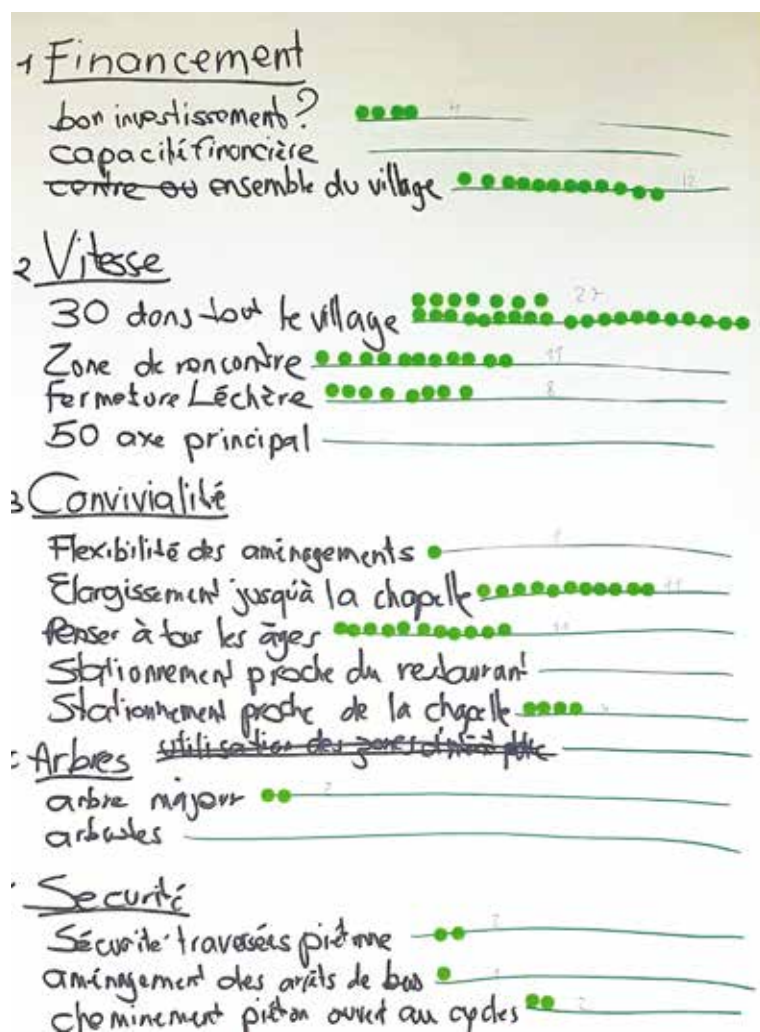 1 Financement
bon investissement? 4
capacité financière
centre ou ensemble du village 12
2 Vitesse
30 dans tout le village 27
Zone de rencontre 11
Fermeture Léchère 8
50 axe principal
3 Convivialité
Flexibilité des aménagements 1
Elargissement jusqu'à la chapelle 11
Penser à tous les âges 11
Stationnement proche du restaurant
Stationnement proche de la chapelle 4
utilisation des zones d'intérêt public
Arbres
arbre majeur 2
arbustes
Securité
Sécurité traversées piétonne 2
aménagement des arrêts de bus 1
cheminement piéton ouvert au cycles 2